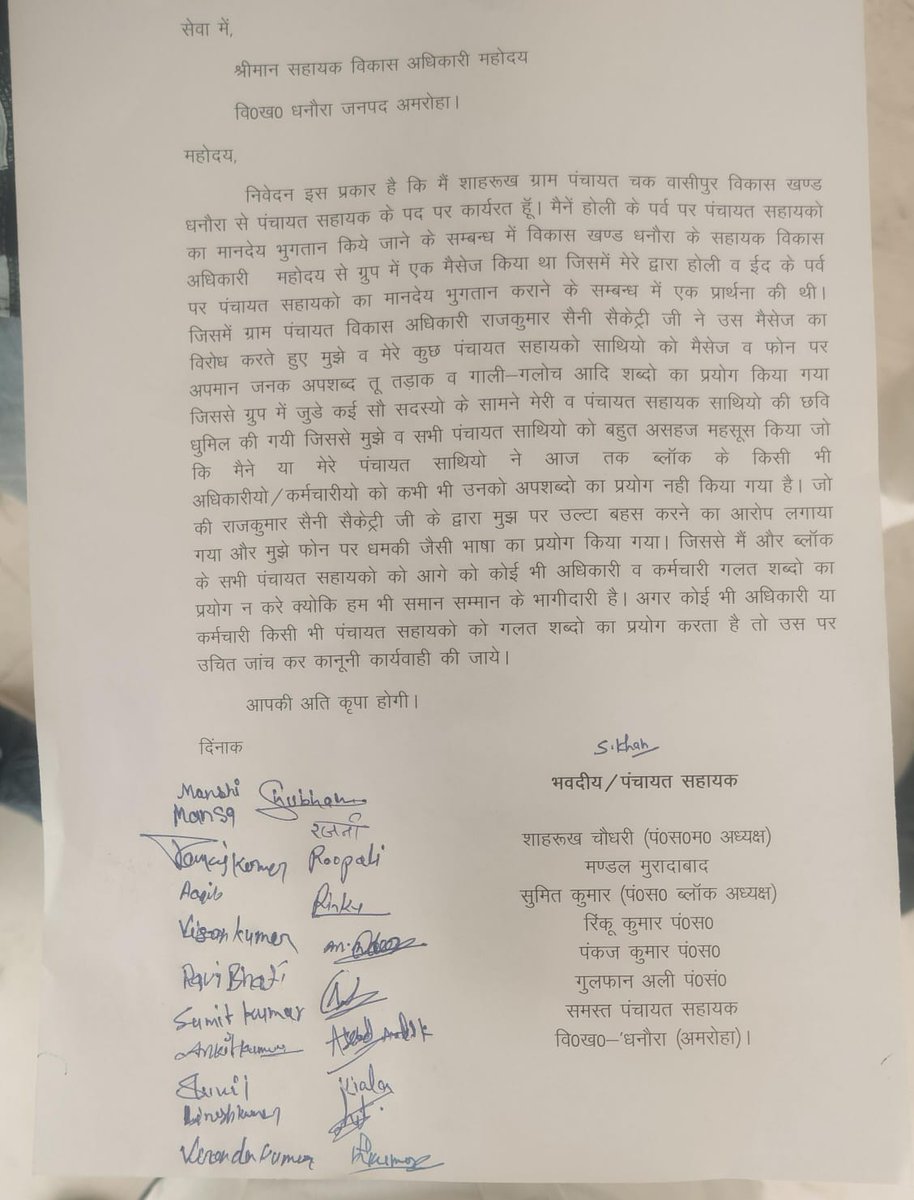 सेवा में,
श्रीमान सहायक विकास अधिकारी महोदय
वि0ख0 धनौरा जनपद अमरोहा।
महोदय,
निवेदन इस प्रकार है कि मैं शाहरूख ग्राम पंचायत चक वासीपुर विकास खण्ड
धनौरा से पंचायत सहायक के पद पर कार्यरत हूॅ। मैनें होली के पर्व पर पंचायत सहायको
का मानदेय भुगतान किये जाने के सम्बन्ध में विकास खण्ड धनौरा के सहायक विकास
अधिकारी महोदय से ग्रुप में एक मैसेज किया था जिसमें मेरे द्वारा होली व ईद के पर्व
पर पंचायत सहायको का मानदेय भुगतान कराने के सम्बन्ध में एक प्रार्थना की थी।
जिसमें ग्राम पंचायत विकास अधिकारी राजकुमार सैनी सैकेट्री जी ने उस मैसेज का
विरोध करते हुए मुझे व मेरे कुछ पंचायत सहायको साथियो को मैसेज व फोन पर
अपमान जनक अपशब्द तू तड़ाक व गाली–गलोच आदि शब्दो का प्रयोग किया गया
जिससे ग्रुप में जुडे कई सौ सदस्यो के सामने मेरी व पंचायत सहायक साथियो की छवि
धुमिल की गयी जिससे मुझे व सभी पंचायत साथियो को बहुत असहज महसूस किया जो
कि मैने या मेरे पंचायत साथियो ने आज तक ब्लॉक के किसी भी
अधिकारीयो/कर्मचारीयो को कभी भी उनको अपशब्दो का प्रयोग नही किया गया है। जो
की राजकुमार सैनी सैकेट्री जी के द्वारा मुझ पर उल्टा बहस करने का आरोप लगाया
गया और मुझे फोन पर धमकी जैसी भाषा का प्रयोग किया गया। जिससे मैं और ब्लॉक
के सभी पंचायत सहायको को आगे को कोई भी अधिकारी व कर्मचारी गलत शब्दो का
प्रयोग न करे क्योकि हम भी समान सम्मान के भागीदारी है। अगर कोई भी अधिकारी या
कर्मचारी किसी भी पंचायत सहायको को गलत शब्दो का प्रयोग करता है तो उस पर
उचित जांच कर कानूनी कार्यवाही की जाये।
आपकी अति कृपा होगी।
दिंनाक
S.Khan
भवदीय/पंचायत सहायक
शाहरूख चौधरी (पं0स0म0 अध्यक्ष)
मण्डल मुरादाबाद
सुमित कुमार (पं0स0 ब्लॉक अध्यक्ष)
रिंकू कुमार पं0स0
पंकज कुमार पं0स0
गुलफान अली पं0सं0
समस्त पंचायत सहायक
वि0ख0–'धनौरा (अमरोहा)।
Manshi Shubham
Mansa रजनी
Kumar Roopali
Aaqib Rinky
Kumar
Ravi Bhati
Sumit kumar
Ankit kumar Asad
Sunil
Dineshkumar
Kumar Kumar